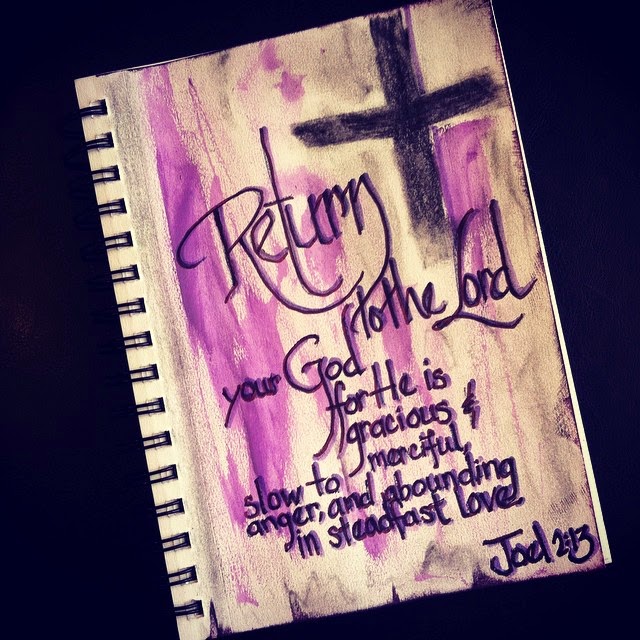 Return
to the Lord
your God
for He is
gracious &
merciful,
slow to
anger, and abounding
in steadfast love.
Joel 2:13